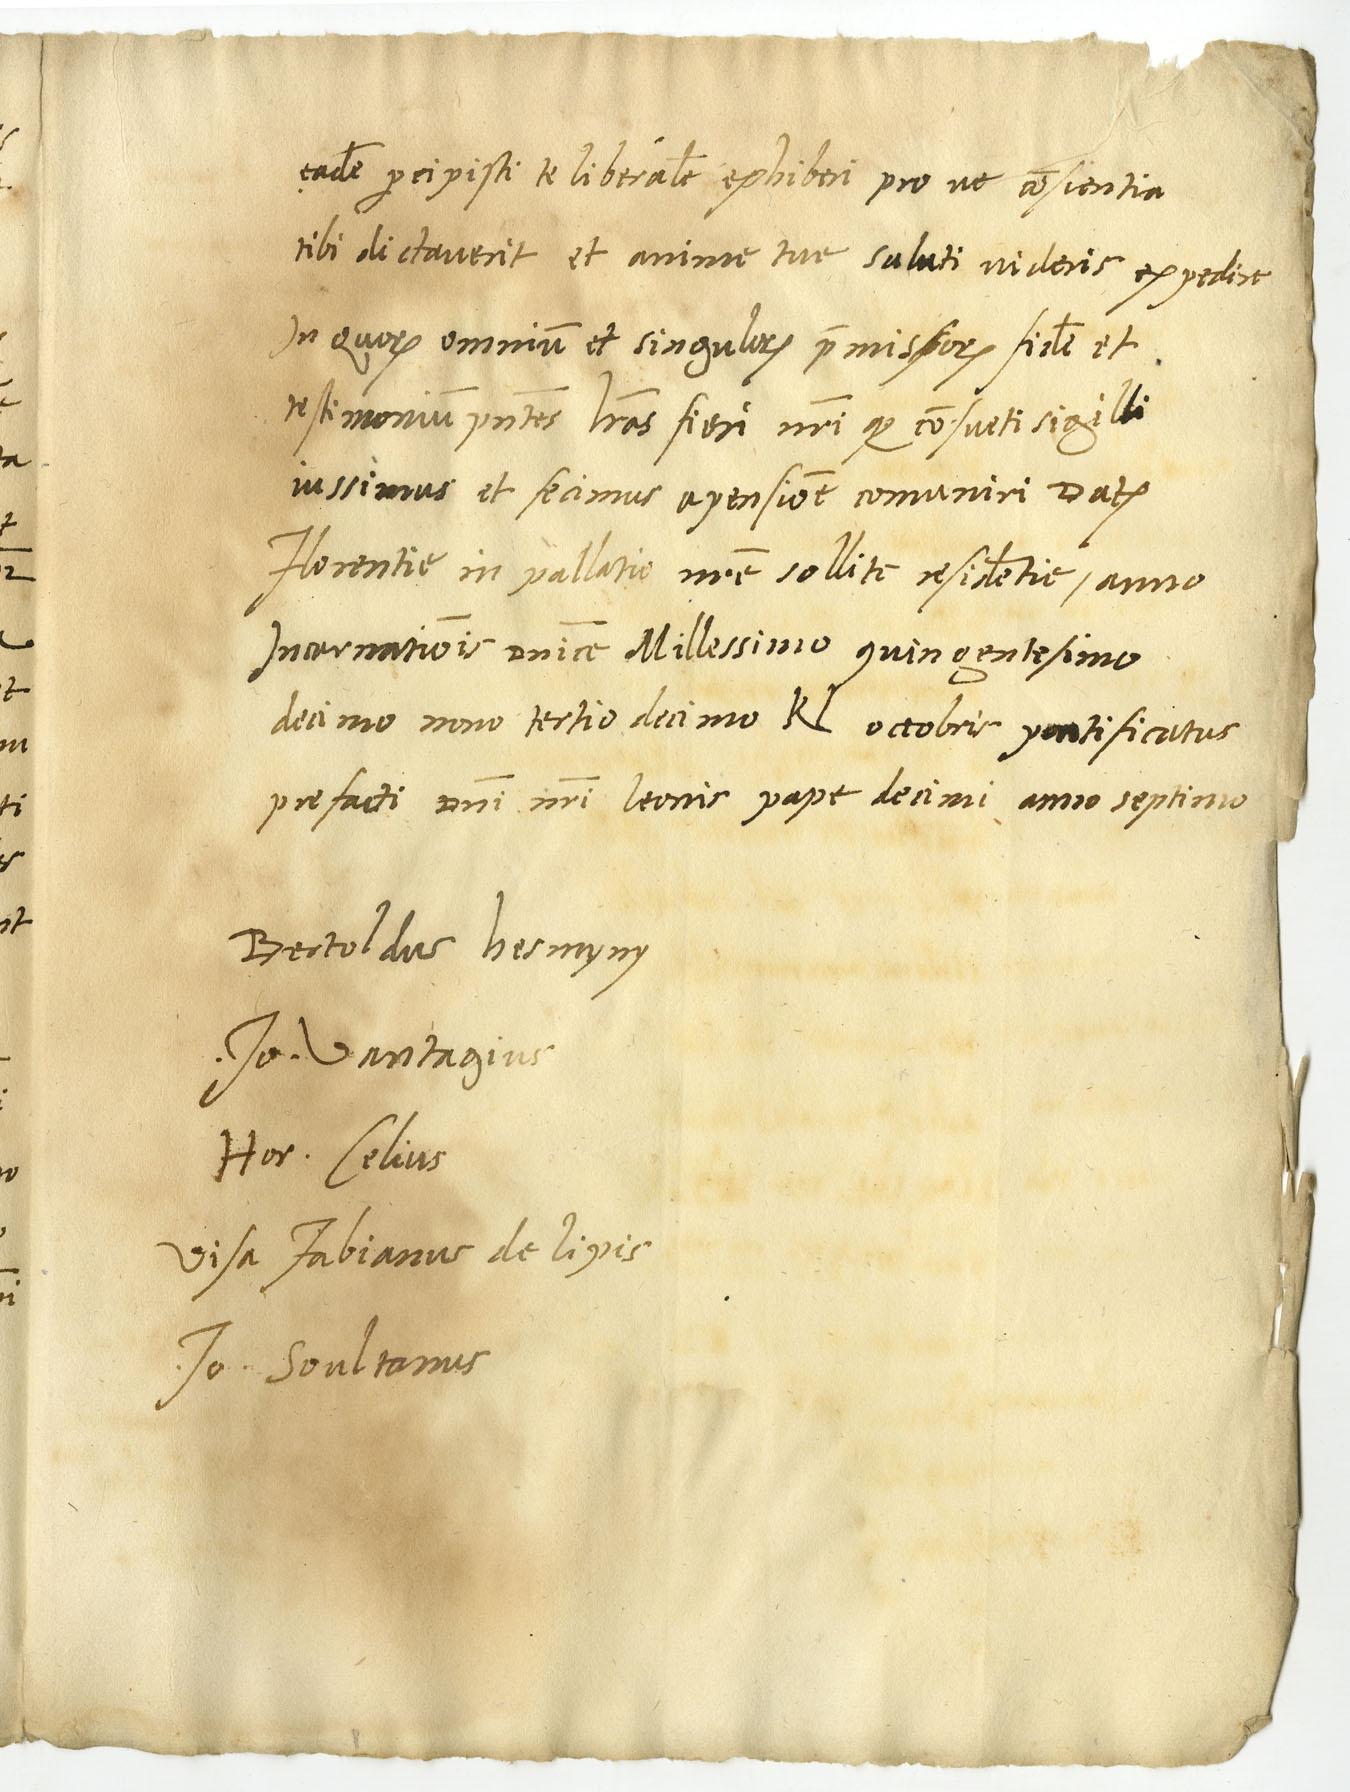 eadē p̱cipisti te liberalē exhiberi pro ut cōsientia
tibi dictaverit et anime tue saluti videris expedire
In quorꝝ omniū et singulorꝝ p̄missorꝝ fidē et
testimoniū pn̄tes lr̄as fieri nr̄i qꝫ cōsueti sigilli
iussimus et fecimus apensiōe comuniri Datꝝ
Florentie in pallatio nrē sollite residētie / anno
Incarnatiōis dnīce Millessimo quingentesimo
decimo nono tertio decimo Kl octobris pontificatus
prefacti dn̄i nr̄i leonis pape decimi anno septimo
Bertoldus hesmyny
.Jo. Vantagius
Hor. Celius
visa Fabianus de lipis
.Jo. Soultanus